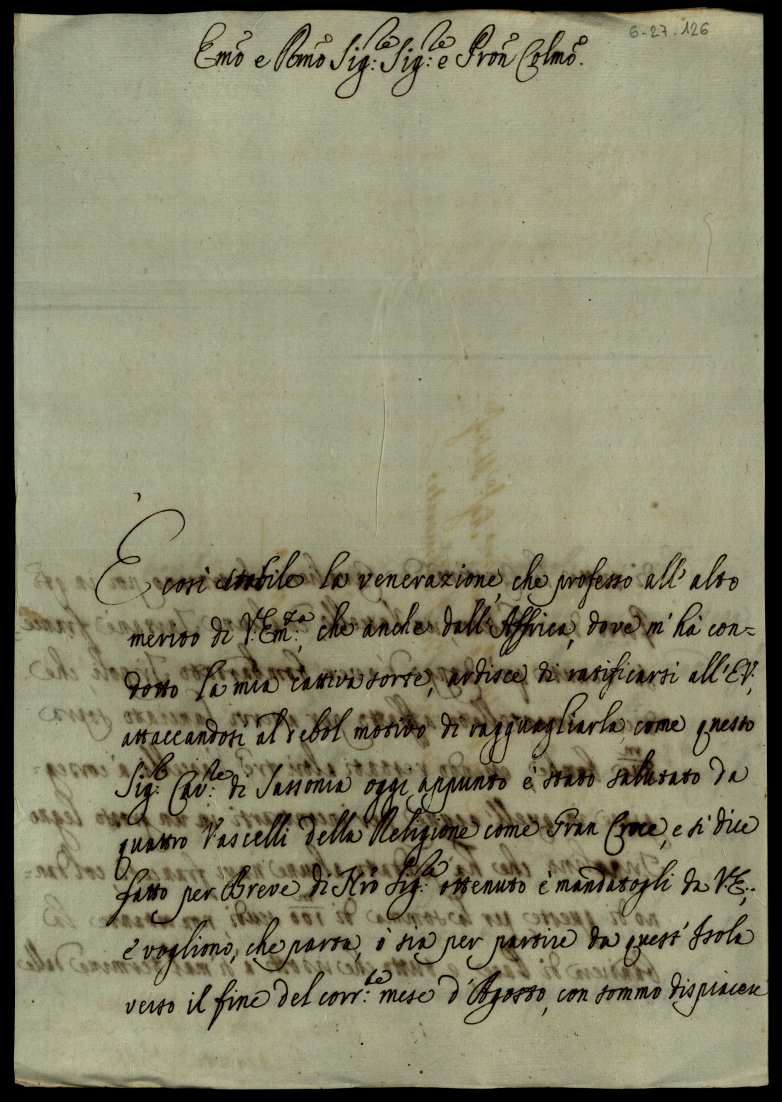 6-27.126
Emo e Rmo Sig:re Sig:re e Pron Colmo.
E così stabile la venerazione, che professo all'alto
merito di V. Em:za, che anche dall'Affrica, dove m'hà con=
dotto la mia cattiva sorte, ardisce di ratificarsi all'EV;
attaccandosi al debol motivo di ragguagliarla come questo
Sig:r Cav:re di Sassonia oggi appunto è stato salutato da
quattro Vascelli della Religione come Gran Croce, e si dice
fatto per Breve di Nro Sig:re ottenuto è mandatogli da V.E.;
e vogliono, che parta, ò sia per partire da quest'Isola
verso il fine del corr:te mese d'Agosto, con sommo dispiacere